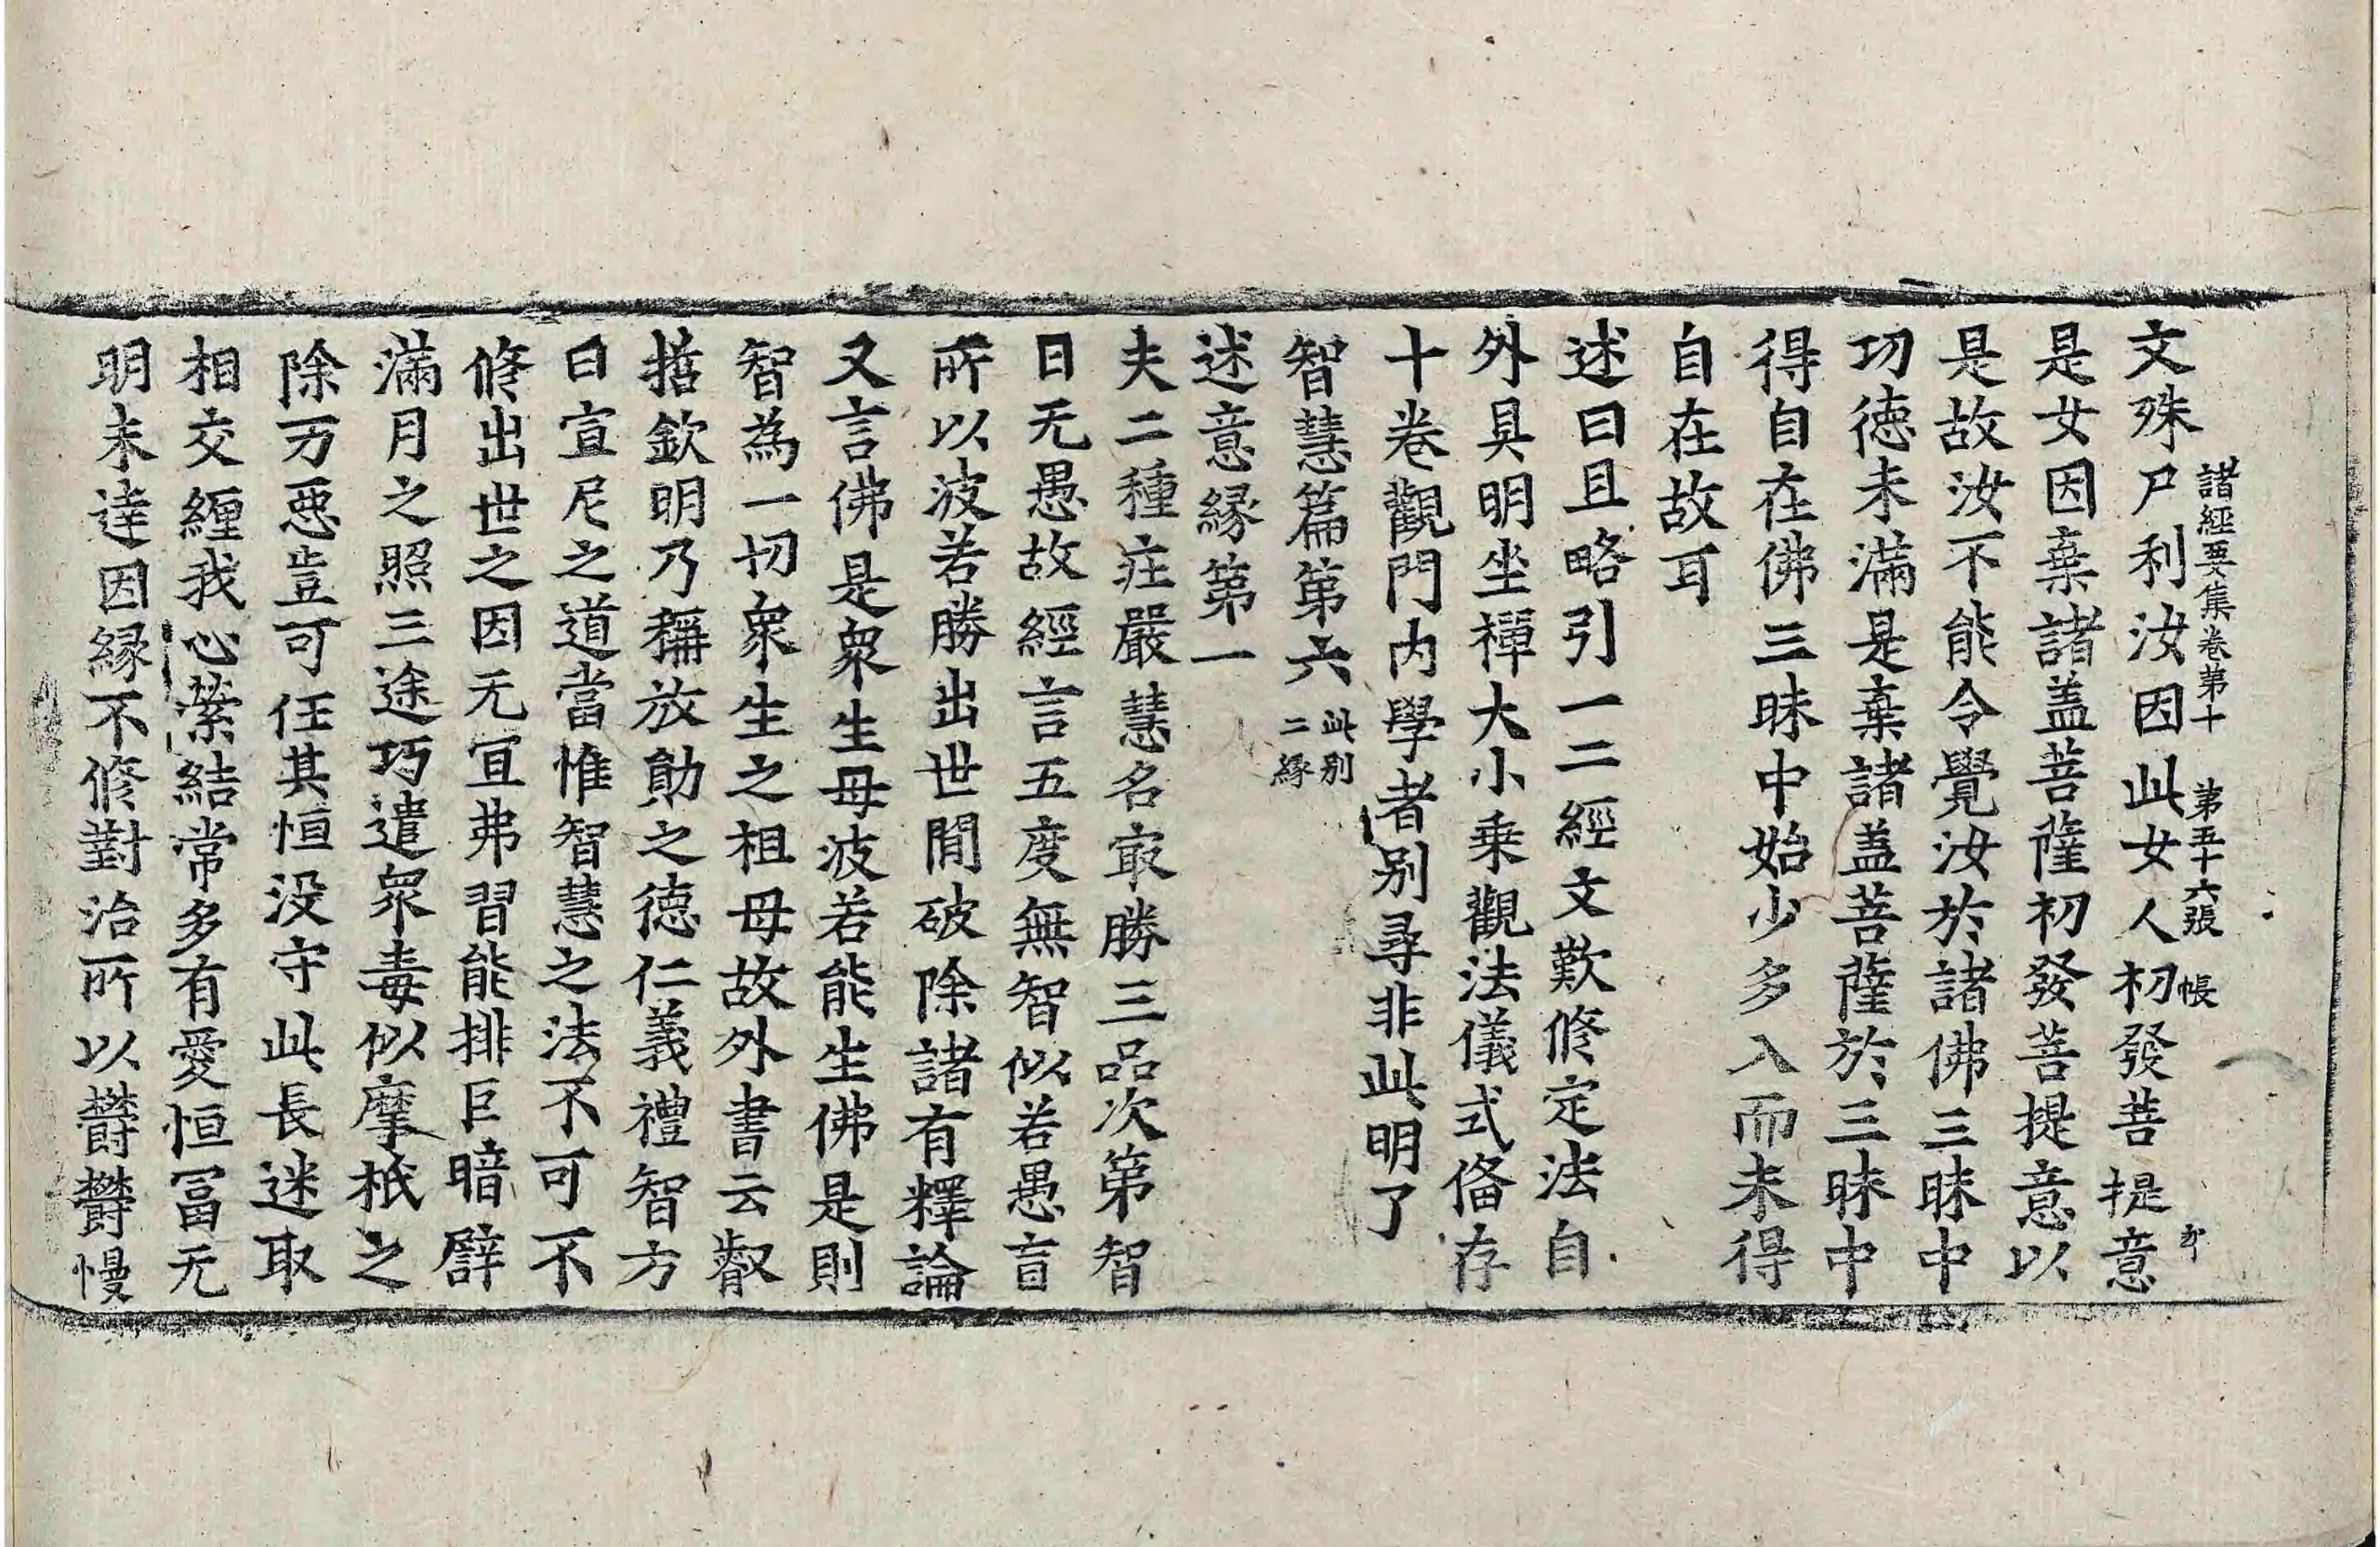 諸經要集卷第十 第五十六張 帳
文殊尸利汝因此女人初發菩提意
是女因棄諸盖菩薩初發菩提意以
是故汝不能令覺汝於諸佛三昧中
功德未滿是棄諸盖菩薩於三昧中
得自在佛三昧中始少多入而未得
自在故耳
述曰且略引一二經文歎修定法自
外具明坐禪大小乗觀法儀式俻存
十卷觀門内學者别尋非此明了
智慧篇第六 此别二縁
述意緣第一
夫二種莊嚴慧名㝡勝三品次第智
日无愚故經言五度無智似若愚盲
所以波若勝出世間破除諸有釋論
又言佛是衆生母波若能生佛是則
智為一切衆生之祖母故外書云叡
掿欽明乃稱放勛之德仁義禮智方
曰宣尼之道當惟智慧之法不可不
修出世之因无冝弗習能排巨暗譬
滿月之照三途巧遣衆毒似摩秖之
除万惡豈可任其恒没守此長迷取
相交纒我心縈結常多有愛恒冨无
明未達因緣不修對治所以欝欝慢